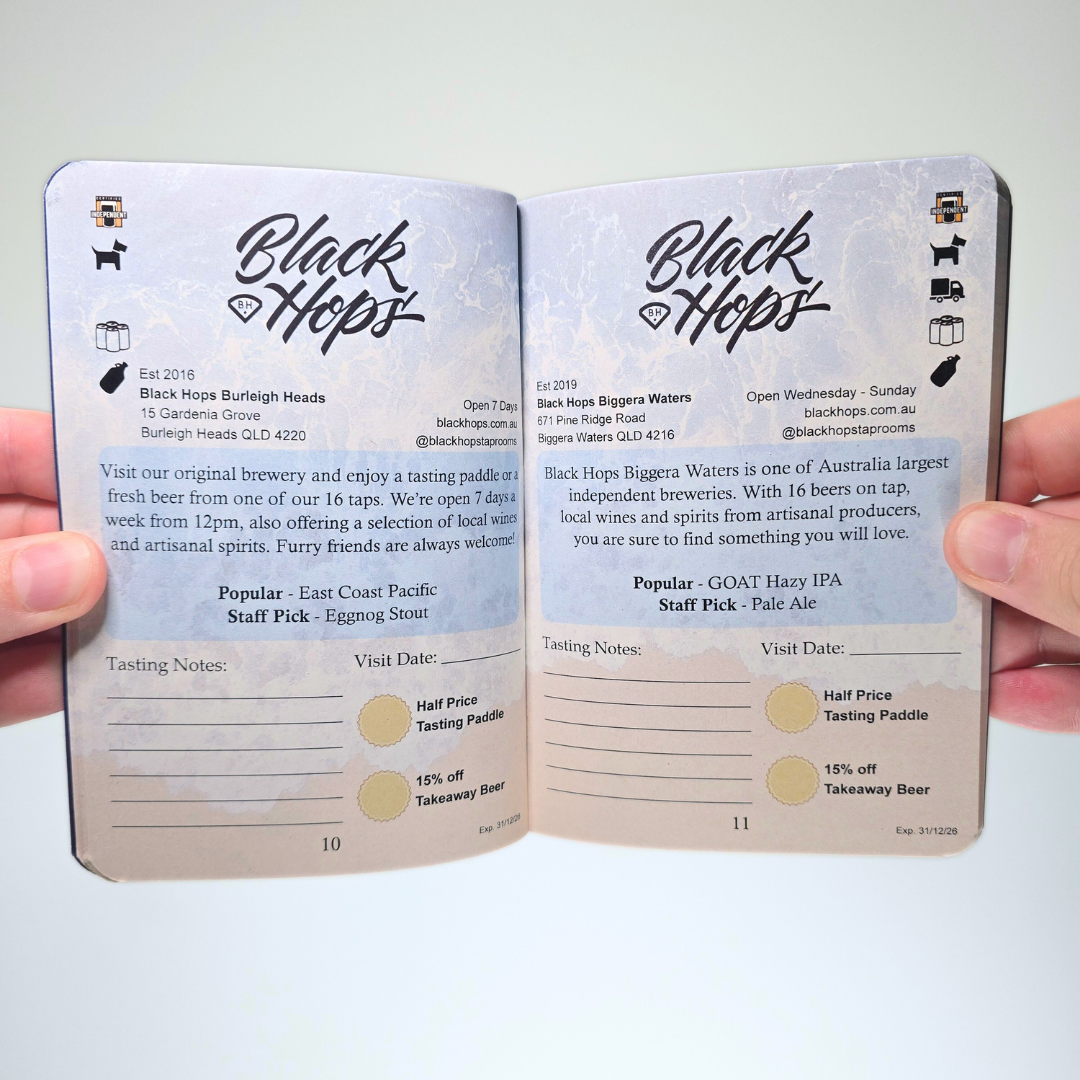 CERTIFIED
INDEPENDENT
Black
Hops
BH
Est 2016
Black Hops Burleigh Heads
15 Gardenia Grove
Burleigh Heads QLD 4220
Open 7 Days
blackhops.com.au
@blackhopstaprooms
Visit our original brewery and enjoy a tasting paddle or a
fresh beer from one of our 16 taps. We're open 7 days a
week from 12pm, also offering a selection of local wines
and artisanal spirits. Furry friends are always welcome!
Popular - East Coast Pacific
Staff Pick - Eggnog Stout
Tasting Notes:
Visit Date:
Half Price
Tasting Paddle
15% off
Takeaway Beer
Exp. 31/12/26
10
CERTIFIED
INDEPENDENT
Black
Hops
BH
Est 2019
Black Hops Biggera Waters
671 Pine Ridge Road
Biggera Waters QLD 4216
Open Wednesday - Sunday
blackhops.com.au
@blackhopstaprooms
Black Hops Biggera Waters is one of Australia largest
independent breweries. With 16 beers on tap,
local wines and spirits from artisanal producers,
you are sure to find something you will love.
Popular - GOAT Hazy IPA
Staff Pick - Pale Ale
Tasting Notes:
Visit Date:
Half Price
Tasting Paddle
15% off
Takeaway Beer
11
Exp. 31/12/26